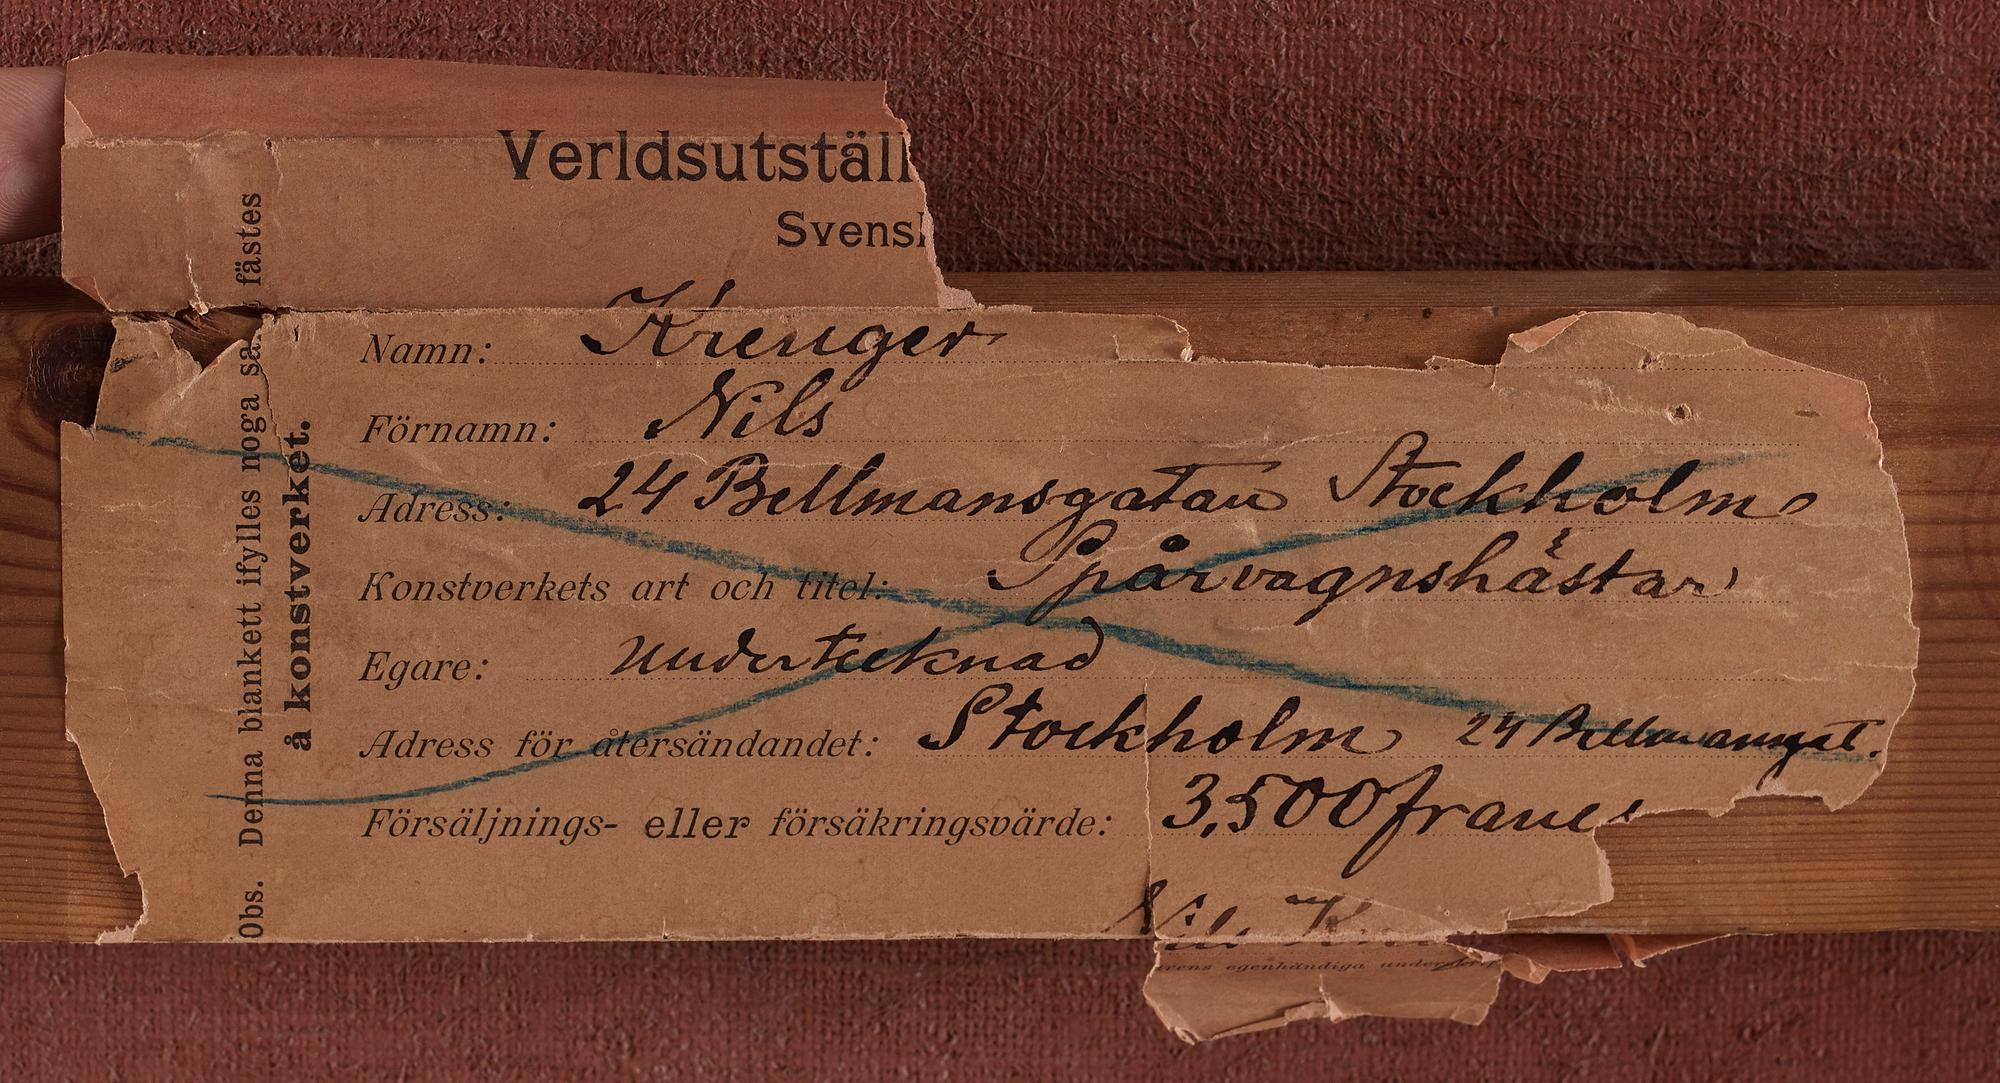 Verldsutställ
Svensk
Namn: Kreuger
Förnamn: Nils
Adress: 24 Bellmansgatan Stockholm
Konstverkets art och titel: Spårvagnshästar
Egare: undertecknad
Adress för återsändandet: Stockholm 24 Bellmansgat.
Försäljnings- eller försäkringsvärde: 3,500 francs
Nils
egenhändiga
Obs. Denna blankett ifylles noga fästes
å konstverket.